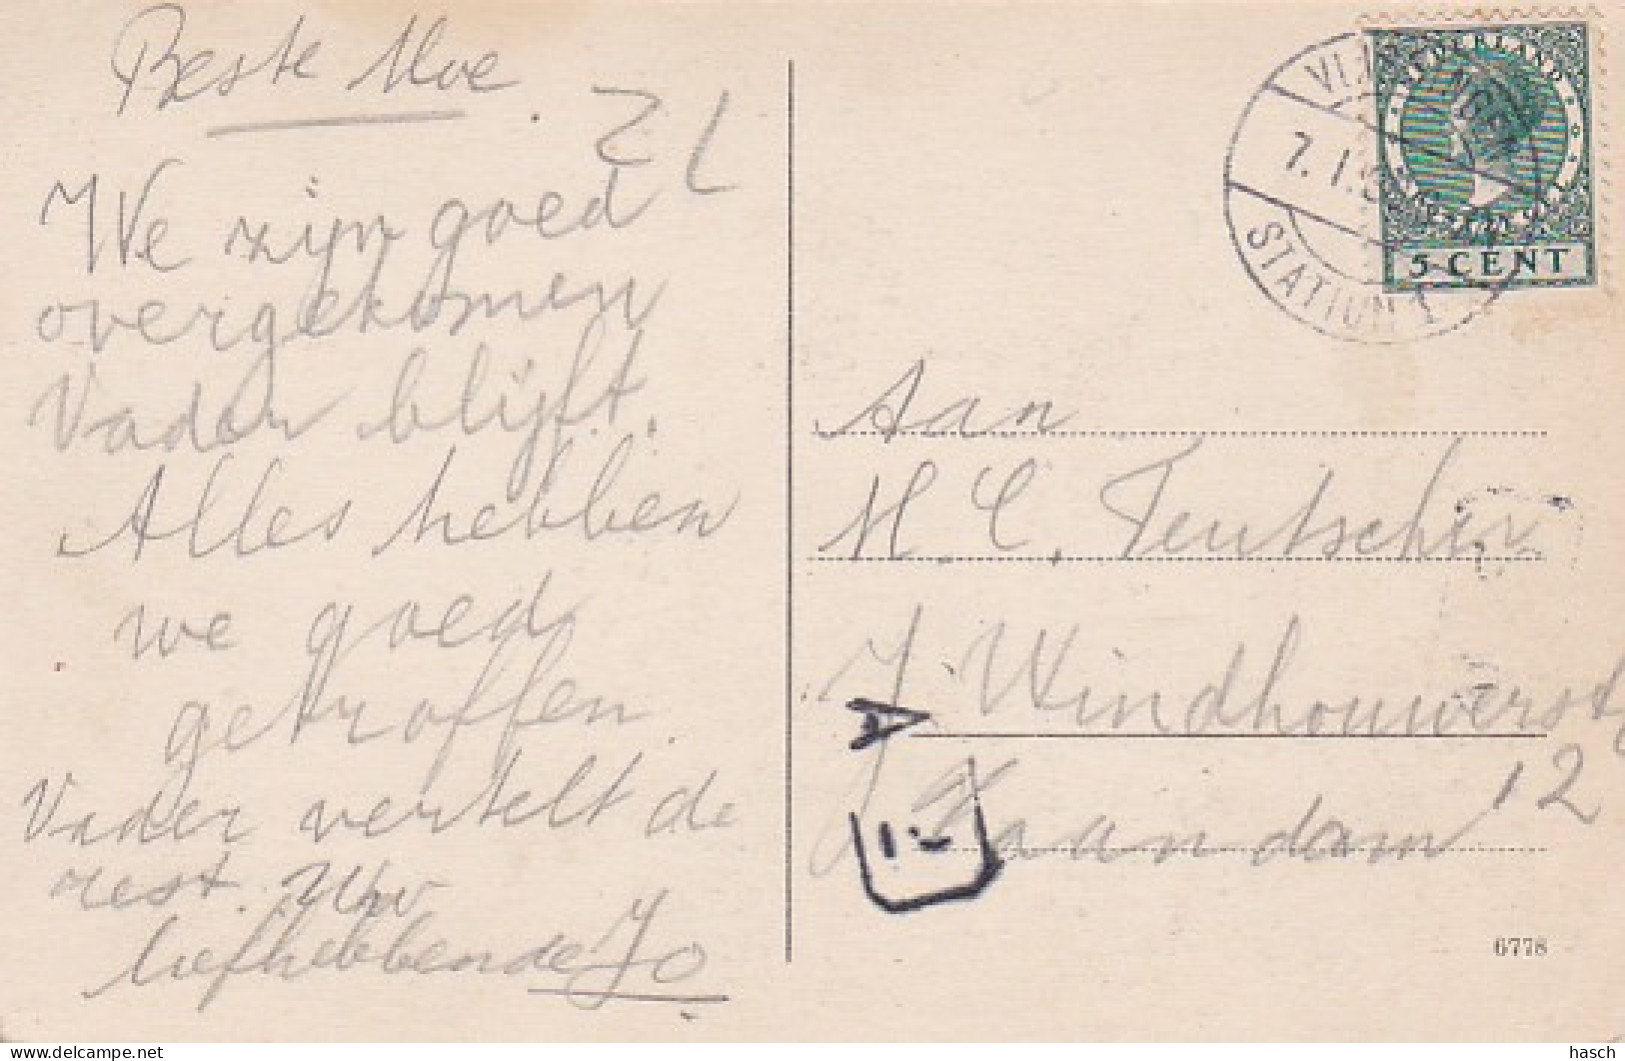 Beste Moe
Z L
We zijn goed
overgekomen
Vader blijft.
Alles hebben
we goed
getroffen
Vader vertelt de
rest. Uw
liefhebbende Jo
NEDERLAND
5 CENT
7.1.
STATION 1
Aan
H. C. Teutscher
J. Windhouwerstr
12
Zaandam
6778
hasch
delcampe.net